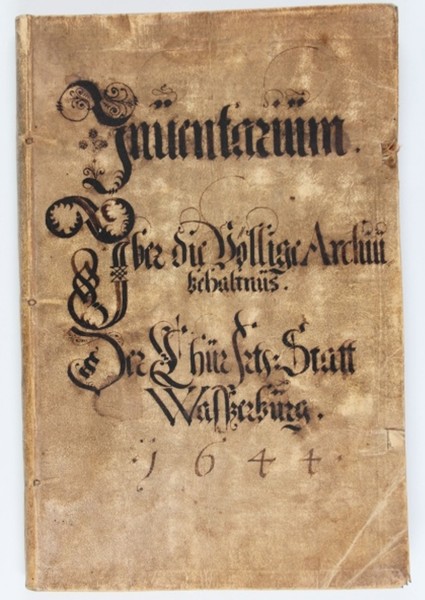 Inüentariüm.
Über die Völlige Archiü
behaltnüs.
Der Chür frts: Statt
Wasserbürg.
1644